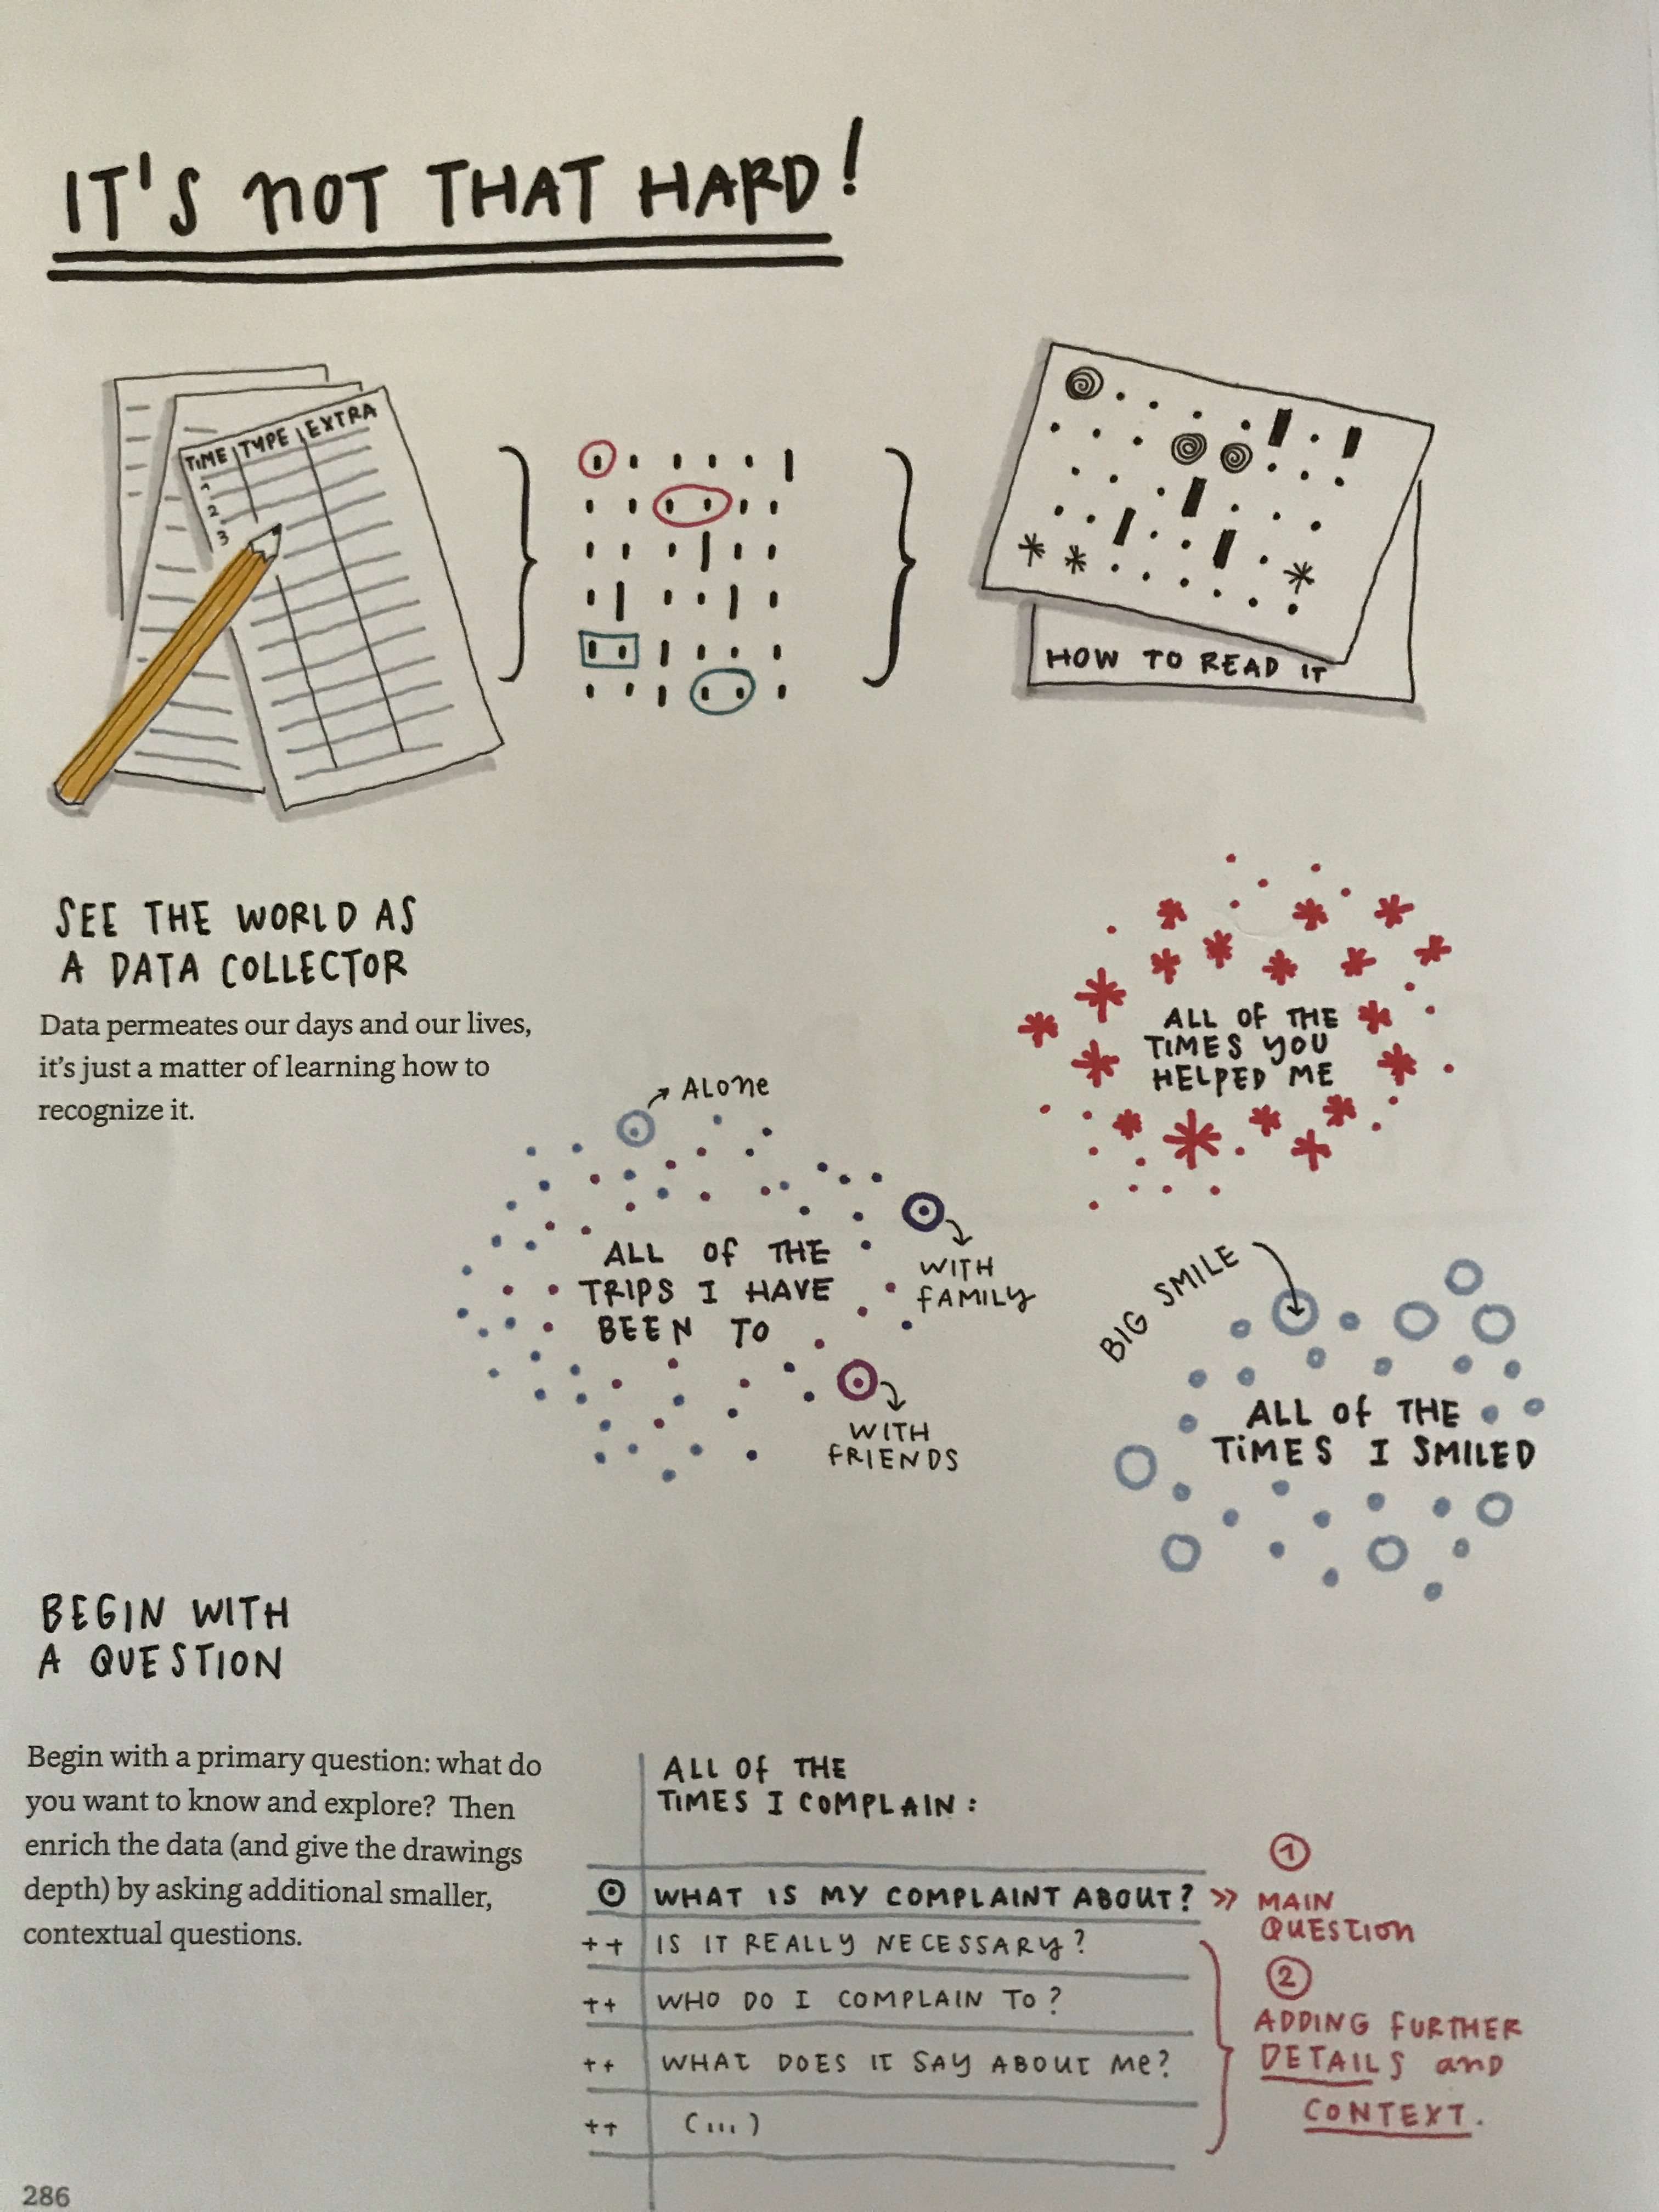 IT'S NOT THAT HARD!
TIME TYPE EXTRA
1
2
3
HOW TO READ IT
SEE THE WORLD AS
A DATA COLLECTOR
Data permeates our days and our lives,
it's just a matter of learning how to
recognize it.
ALL OF THE
TIMES YOU
HELPED ME
ALONE
ALL OF THE
TRIPS I HAVE
BEEN TO
WITH
FAMILY
WITH
FRIENDS
BIG SMILE
ALL OF THE
TIMES I SMILED
BEGIN WITH
A QUESTION
Begin with a primary question: what do
you want to know and explore? Then
enrich the data (and give the drawings
depth) by asking additional smaller,
contextual questions.
ALL OF THE
TIMES I COMPLAIN:
WHAT IS MY COMPLAINT ABOUT? >>
++ IS IT REALLY NECESSARY?
++ WHO DO I COMPLAIN TO?
++ WHAT DOES IT SAY ABOUT ME?
++ (...)
1
MAIN
QUESTION
2
ADDING FURTHER
DETAILS AND
CONTEXT.
286